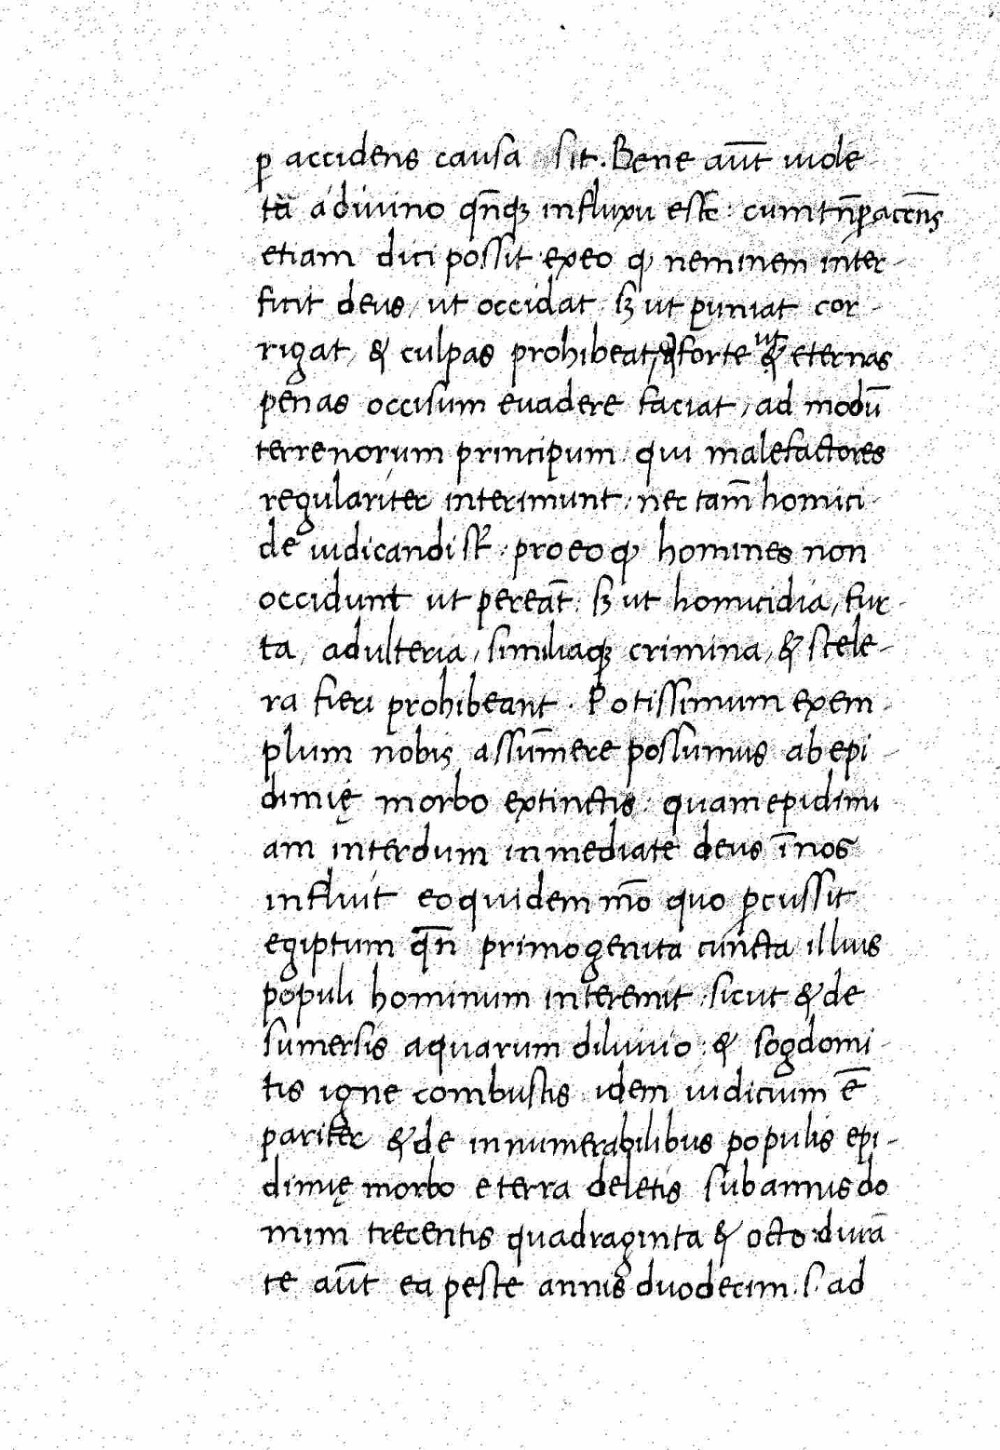 p̲ accidens causa sit. Bene aūt uiole
tā a diuino qn̄q; influxu est: cum tn̄ p̲ accn̄s
etiam dici possit exeo q; neminem inter-
ficit deus, ut occidat, sꝫ ut puniat cor-
rigat, & culpas prohibeat, & forte ut & eternas
penas occisum euadere faciat, ad modū
terrenorum principum: qui malefactores
regulariter interimunt: nec tam̄ homici
de iudicandi st̄: pro eo q; homines non
occidunt ut pereāt: sꝫ ut homicidia, fur-
ta, adulteria, similiaq; crimina, & scele-
ra fieri prohibeant. Potissimum exem-
plum nobis assum̄ere possumus ab epi-
dimię morbo extinctis: quam epidimi
am interdum inmediate deus ī nos
influit eo quidem mō quo p̲cussit
egiptum qn̄ primogenita cuncta illius
populi hominum interemit: sicut & de
sumersis aquarum diluuio: & sogdomi-
tis igne combustis idem iudicium ē
pariter & de innumerabilibus populis epi-
dimię morbo e terra deletis sub annis do
mini trecentis quadraginta & octo: durā
te aūt ea peste annis duodecim. s. ad